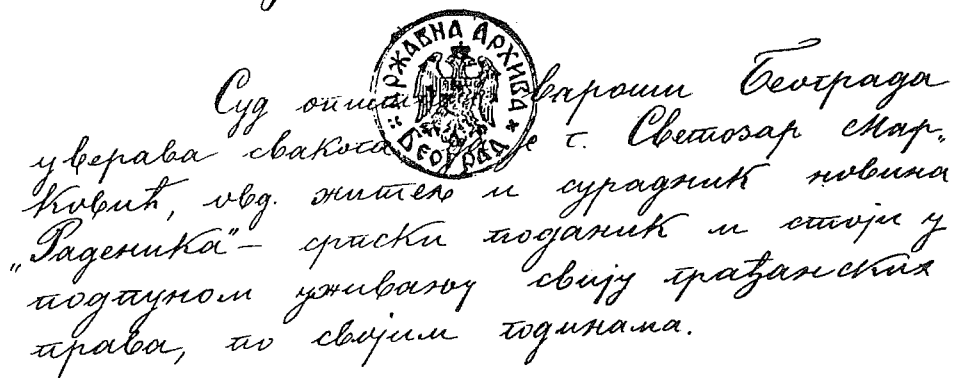 ДРЖАВНА АРХИВА
БЕОГРАД
Суд општ вароши Београда
уверава свакога е г. Светозар Мар„
ковић, овд. житељ и сурадник новина
„Раденика“ – српски поданик и стоји у
подпуном уживању свију грађанских
права, по својим годинама.